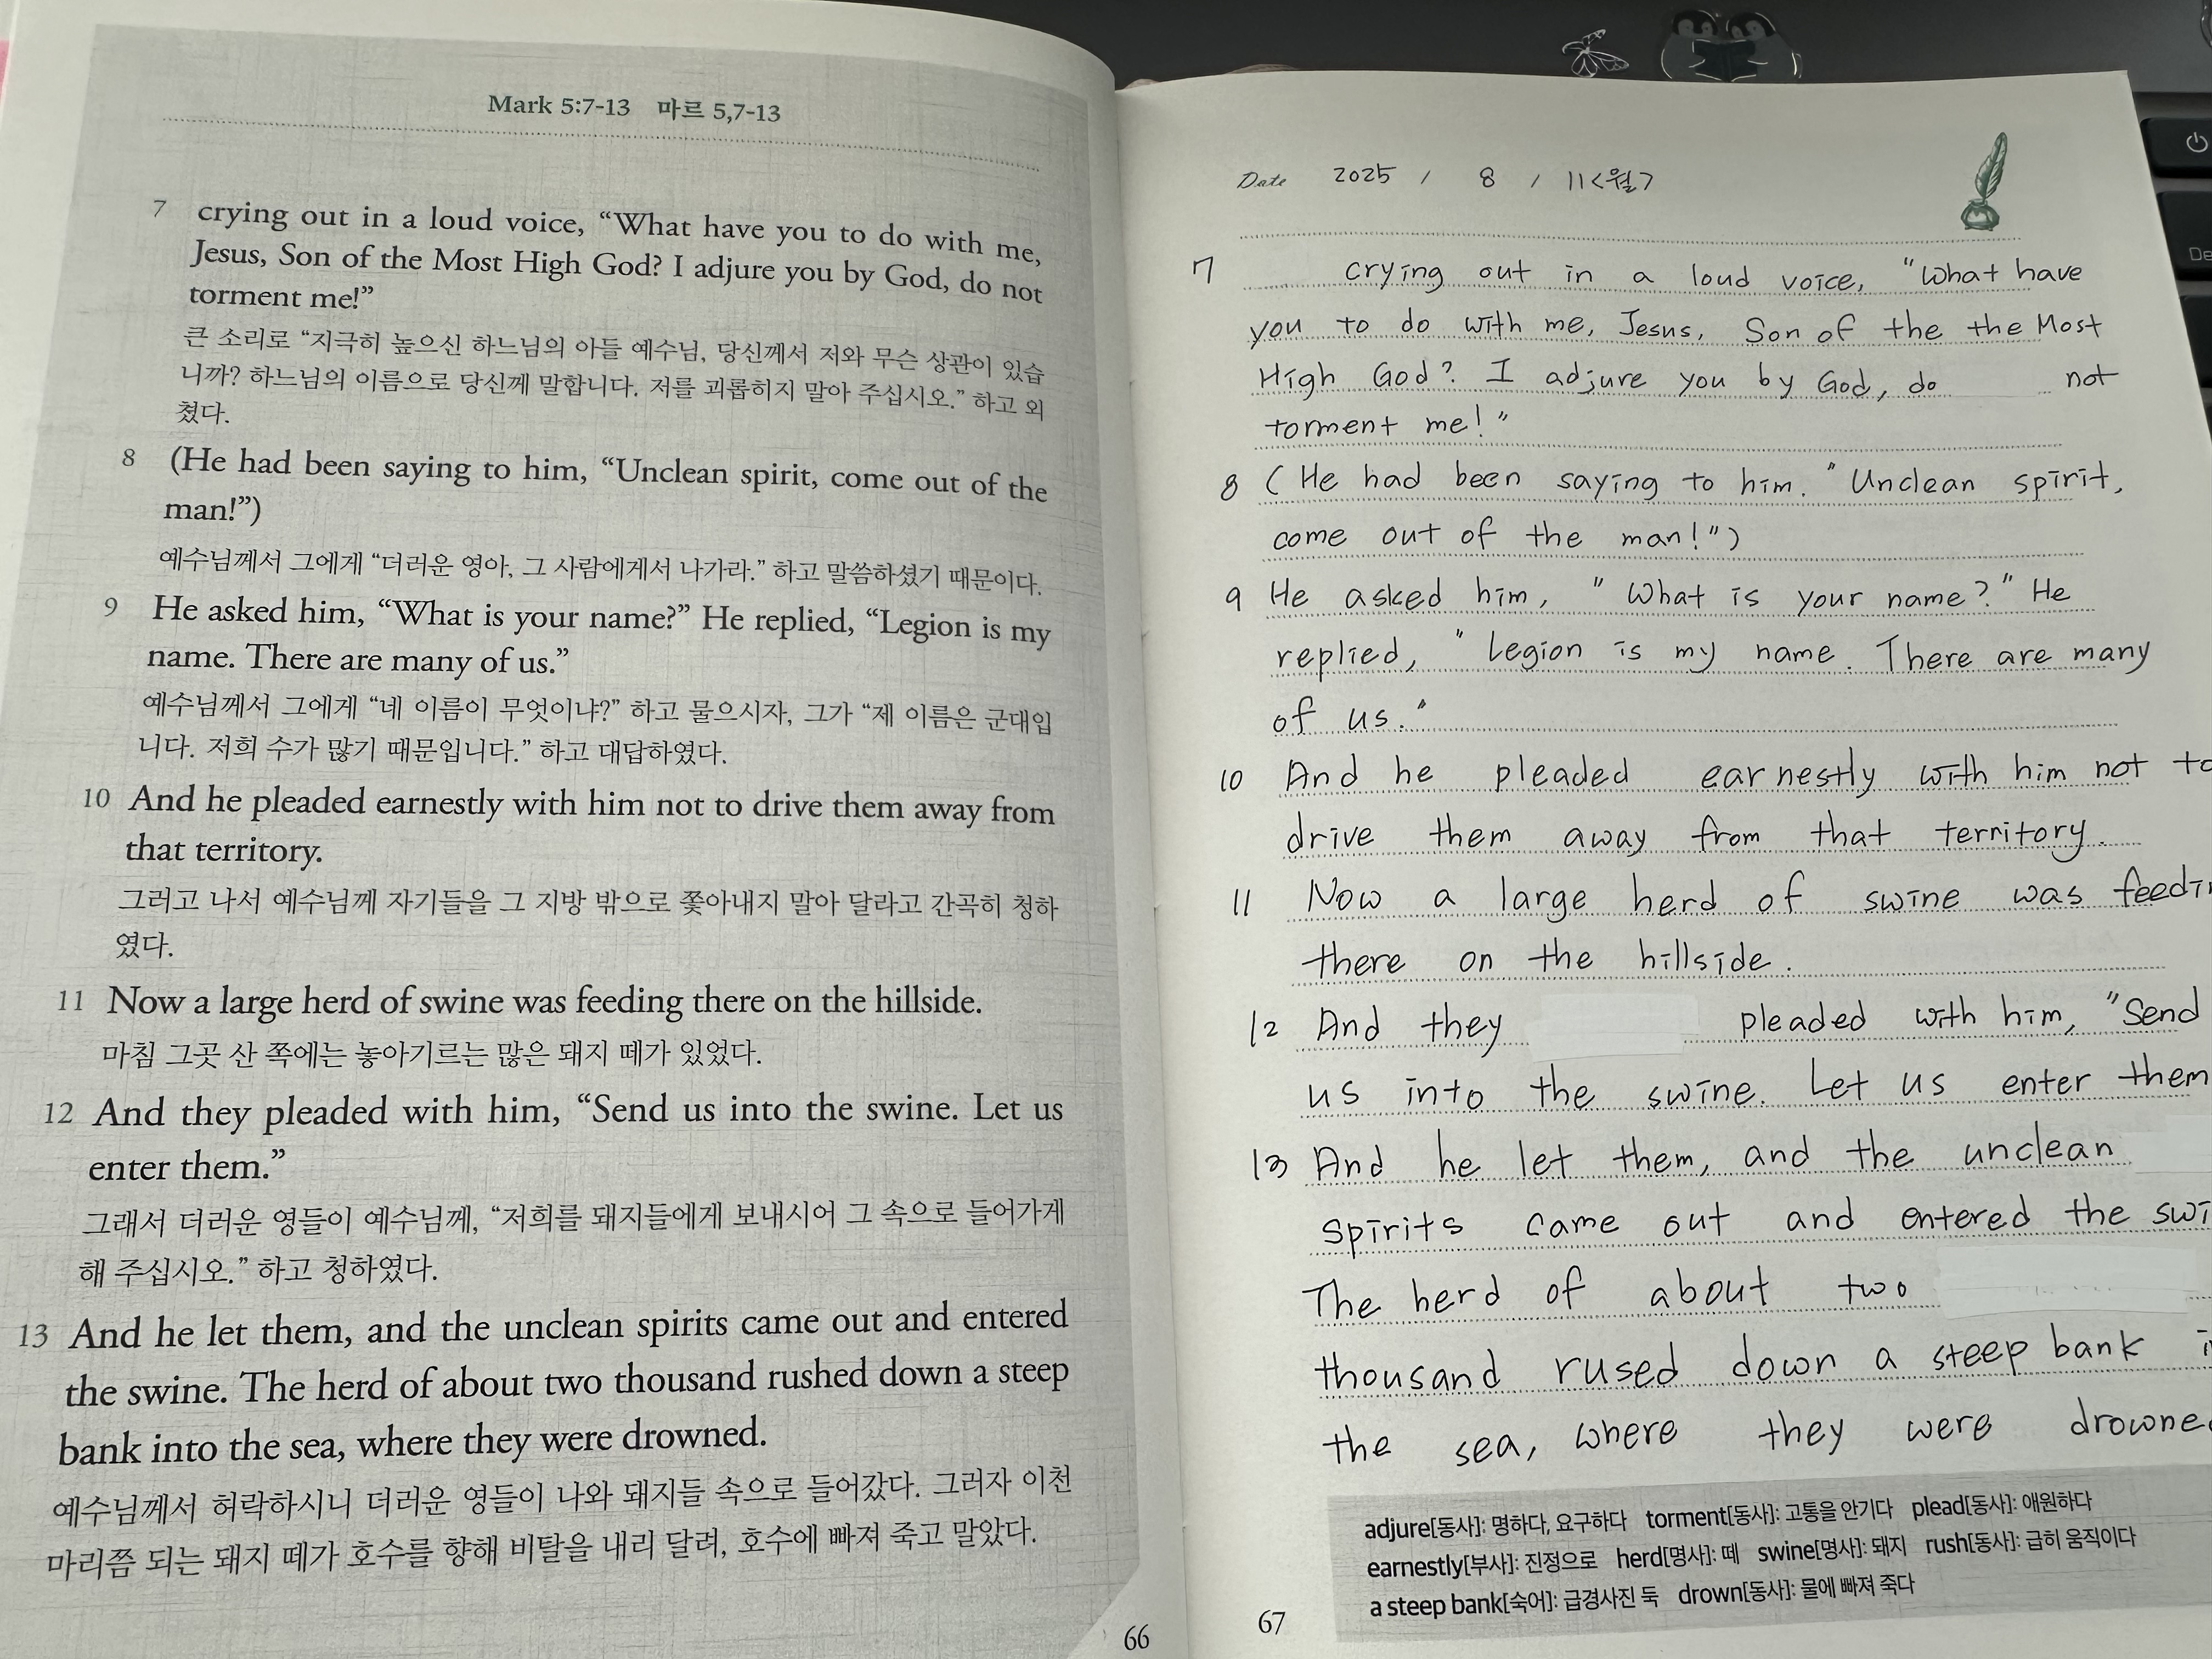 Mark 5:7-13 마르 5,7-13
7 crying out in a loud voice, “What have you to do with me,
Jesus, Son of the Most High God? I adjure you by God, do not
torment me!”
큰 소리로 “지극히 높으신 하느님의 아들 예수님, 당신께서 저와 무슨 상관이 있습
니까? 하느님의 이름으로 당신께 말합니다. 저를 괴롭히지 말아 주십시오.” 하고 외
쳤다.
8 (He had been saying to him, “Unclean spirit, come out of the
man!”)
예수님께서 그에게 “더러운 영아, 그 사람에게서 나가라.” 하고 말씀하셨기 때문이다.
9 He asked him, “What is your name?” He replied, “Legion is my
name. There are many of us.”
예수님께서 그에게 “네 이름이 무엇이냐?” 하고 물으시자, 그가 “제 이름은 군대입
니다. 저희 수가 많기 때문입니다.” 하고 대답하였다.
10 And he pleaded earnestly with him not to drive them away from
that territory.
그러고 나서 예수님께 자기들을 그 지방 밖으로 쫓아내지 말아 달라고 간곡히 청하
였다.
11 Now a large herd of swine was feeding there on the hillside.
마침 그곳 산 쪽에는 놓아기르는 많은 돼지 떼가 있었다.
12 And they pleaded with him, “Send us into the swine. Let us
enter them.”
그래서 더러운 영들이 예수님께, “저희를 돼지들에게 보내시어 그 속으로 들어가게
해 주십시오.” 하고 청하였다.
13 And he let them, and the unclean spirits came out and entered
the swine. The herd of about two thousand rushed down a steep
bank into the sea, where they were drowned.
예수님께서 허락하시니 더러운 영들이 나와 돼지들 속으로 들어갔다. 그러자 이천
마리쯤 되는 돼지 떼가 호수를 향해 비탈을 내리 달려, 호수에 빠져 죽고 말았다.
66
Date 2025 / 8 / 11<월>
7 crying out in a loud voice, "What have
you to do with me, Jesus, Son of the the Most
High God? I adjure you by God, do not
torment me!"
8 (He had been saying to him. "Unclean spirit,
come out of the man!")
9 He asked him, "What is your name?" He
replied, "Legion is my name. There are many
of us."
10 And he pleaded earnestly with him not to
drive them away from that territory.
11 Now a large herd of swine was feedin
there on the hillside.
12 And they pleaded with him, "Send
us into the swine. Let us enter them
13 And he let them, and the unclean
spirits came out and entered the swi
The herd of about two
thousand rused down a steep bank i
the sea, where they were drowne
adjure[동사]: 명하다, 요구하다 torment[동사]: 고통을 안기다 plead[동사]: 애원하다
earnestly[부사]: 진정으로 herd[명사]: 떼 swine[명사]: 돼지 rush[동사]: 급히 움직이다
a steep bank[숙어]: 급경사진 둑 drown[동사]: 물에 빠져 죽다
67
De